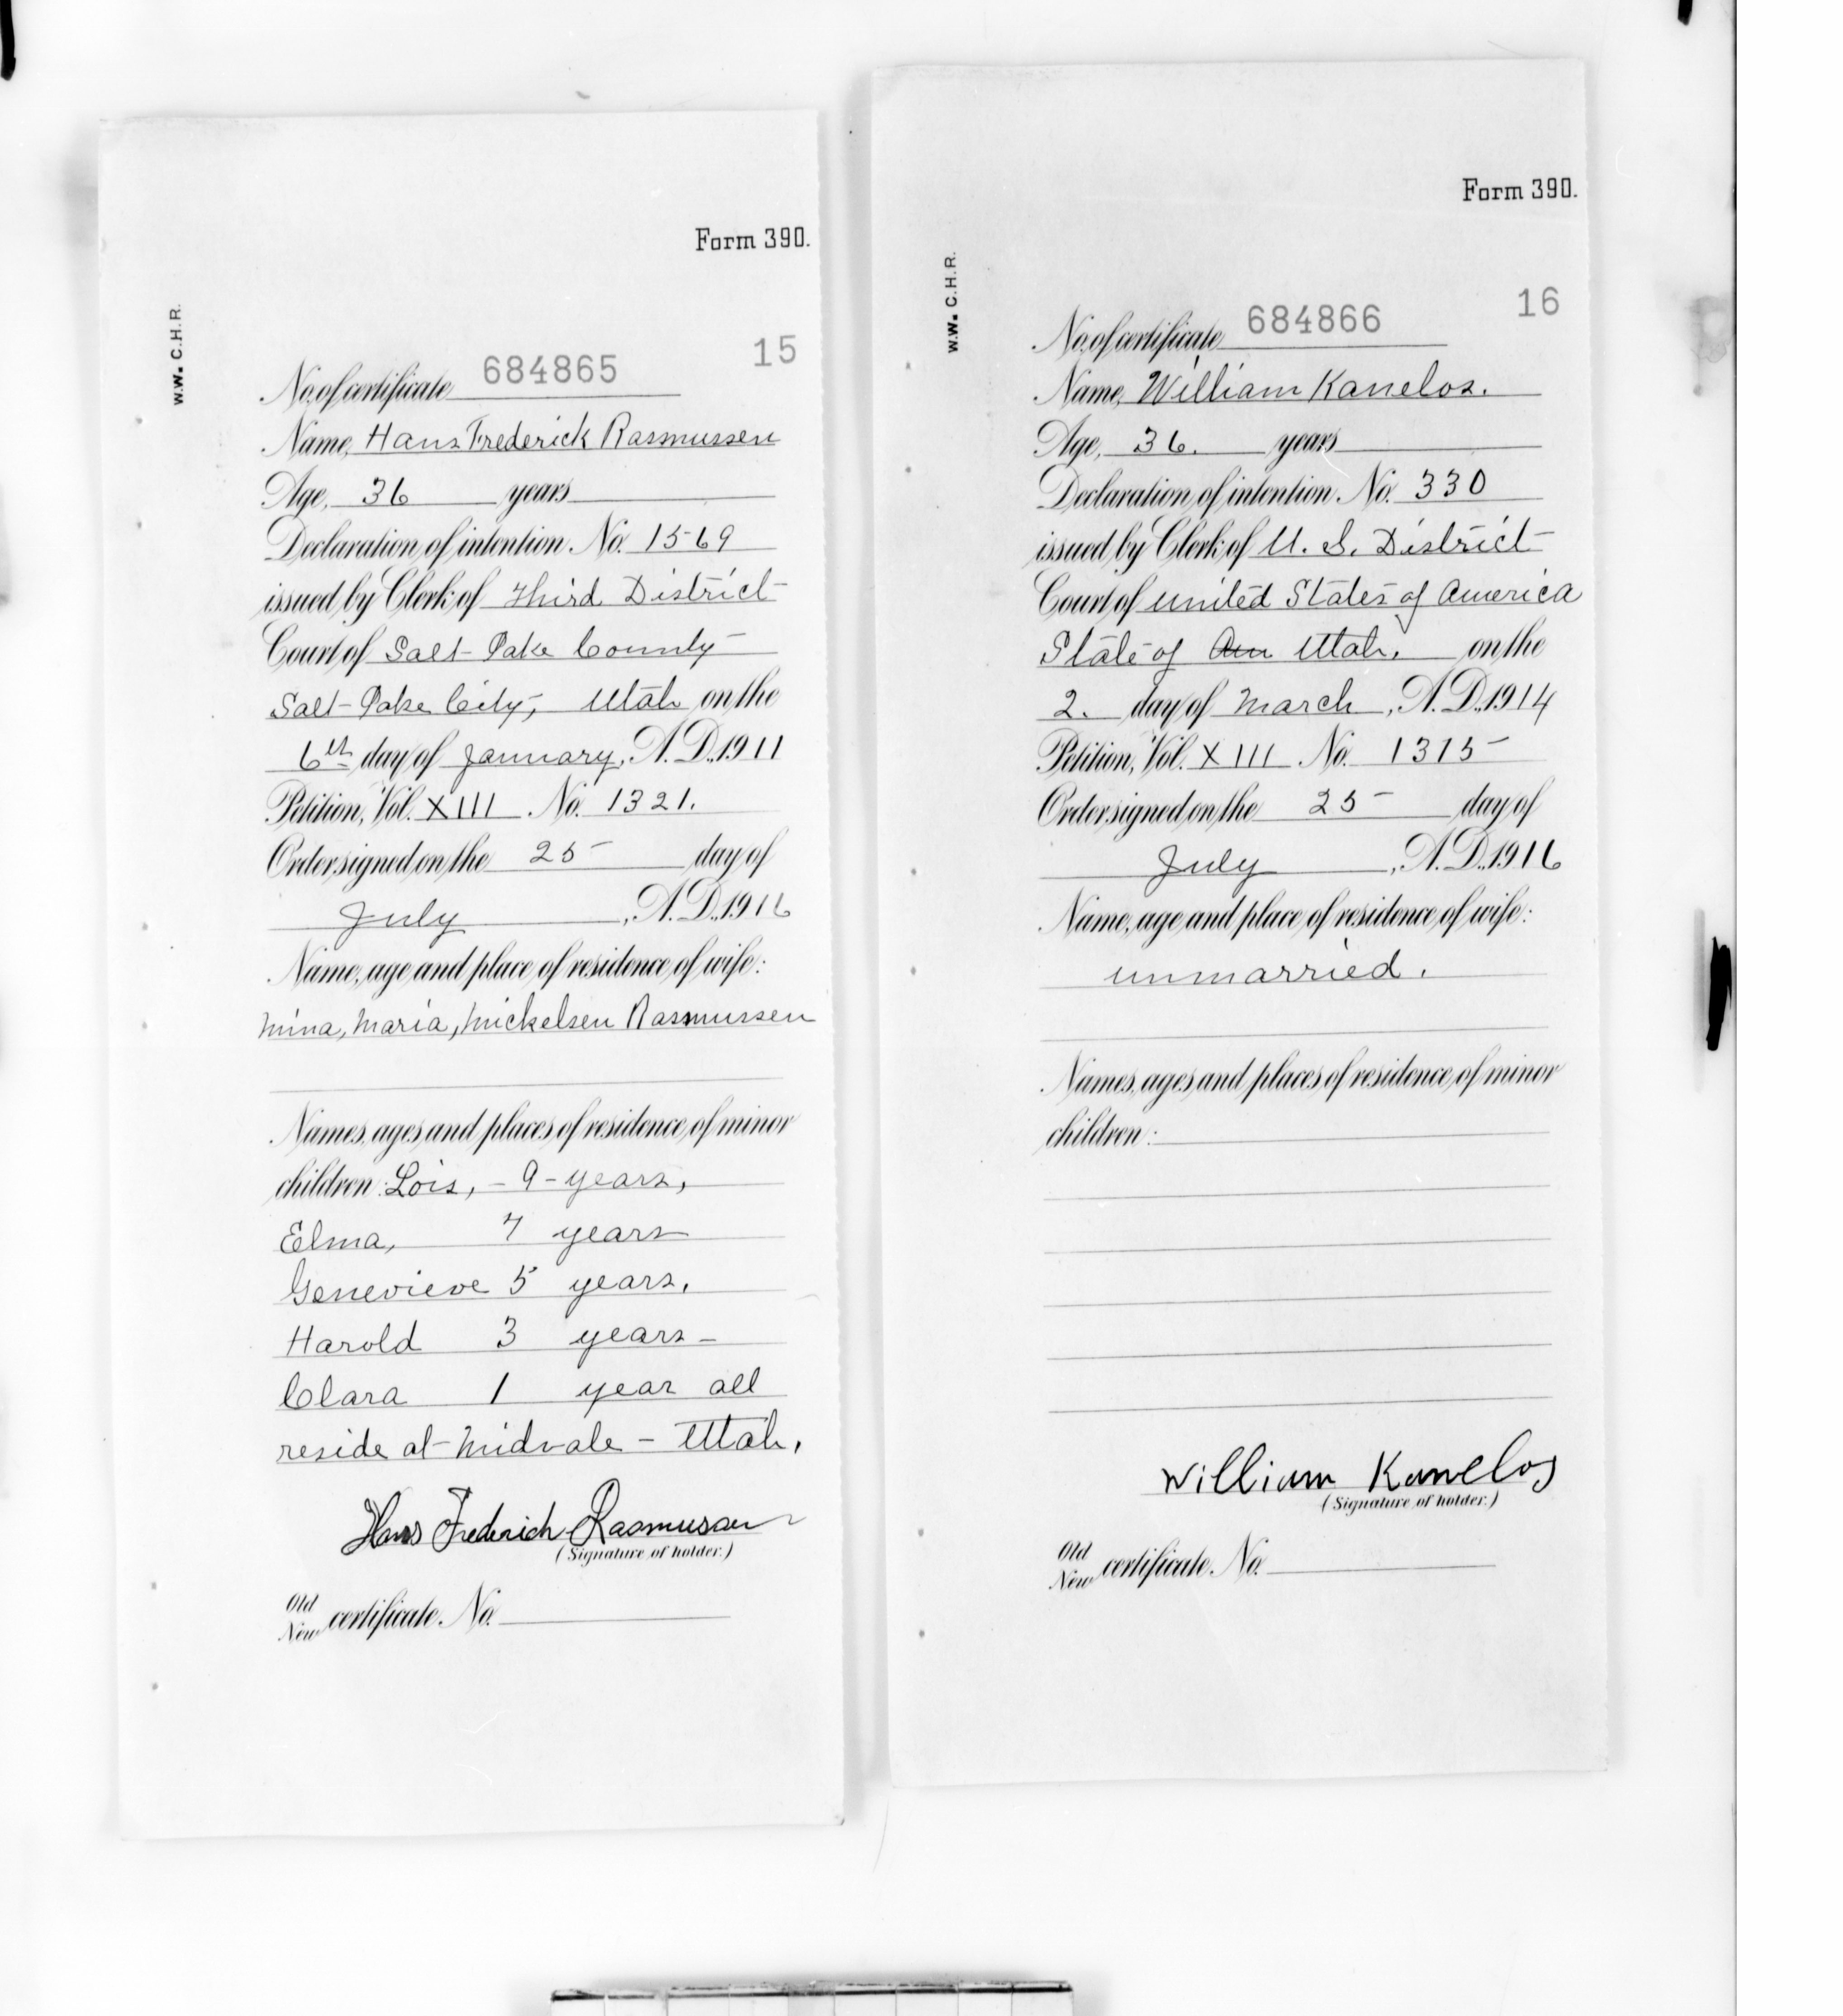 Form 390.
W.W. C.H.R.
15
No. of certificate 684865
Name, Hans Frederick Rasmussen
Age, 36 years
Declaration of intention No. 1569
issued by Clerk of Third District
Court of Salt Lake County
Salt Lake City, Utah on the
6th day of January, A.D. 1911
Petition, Vol. XIII No. 1321.
Order signed on the 25 day of
July, A.D. 1916
Name, age and place of residence of wife:
Mina, Maria, Mickelsen Rasmussen
Names, ages and places of residence of minor
children: Lois, - 9 - years,
Elma, 7 years
Genevieve 5 years,
Harold 3 years -
Clara 1 year all
reside at Midvale - Utah,
Hans Frederich Rasmussen
(Signature of holder.)
Old
New certificate No.
Form 390.
W.W. C.H.R.
16
No. of certificate 684866
Name, William Kanelos.
Age, 36. years
Declaration of intention No. 330
issued by Clerk of U. S. District
Court of United States of America
State of Am Utah, on the
2. day of March, A.D. 1914
Petition, Vol. XIII No. 1315
Order signed on the 25 day of
July, A.D. 1916
Name, age and place of residence of wife:
unmarried.
Names, ages and places of residence of minor
children:
William Kanelos
(Signature of holder.)
Old
New certificate No.